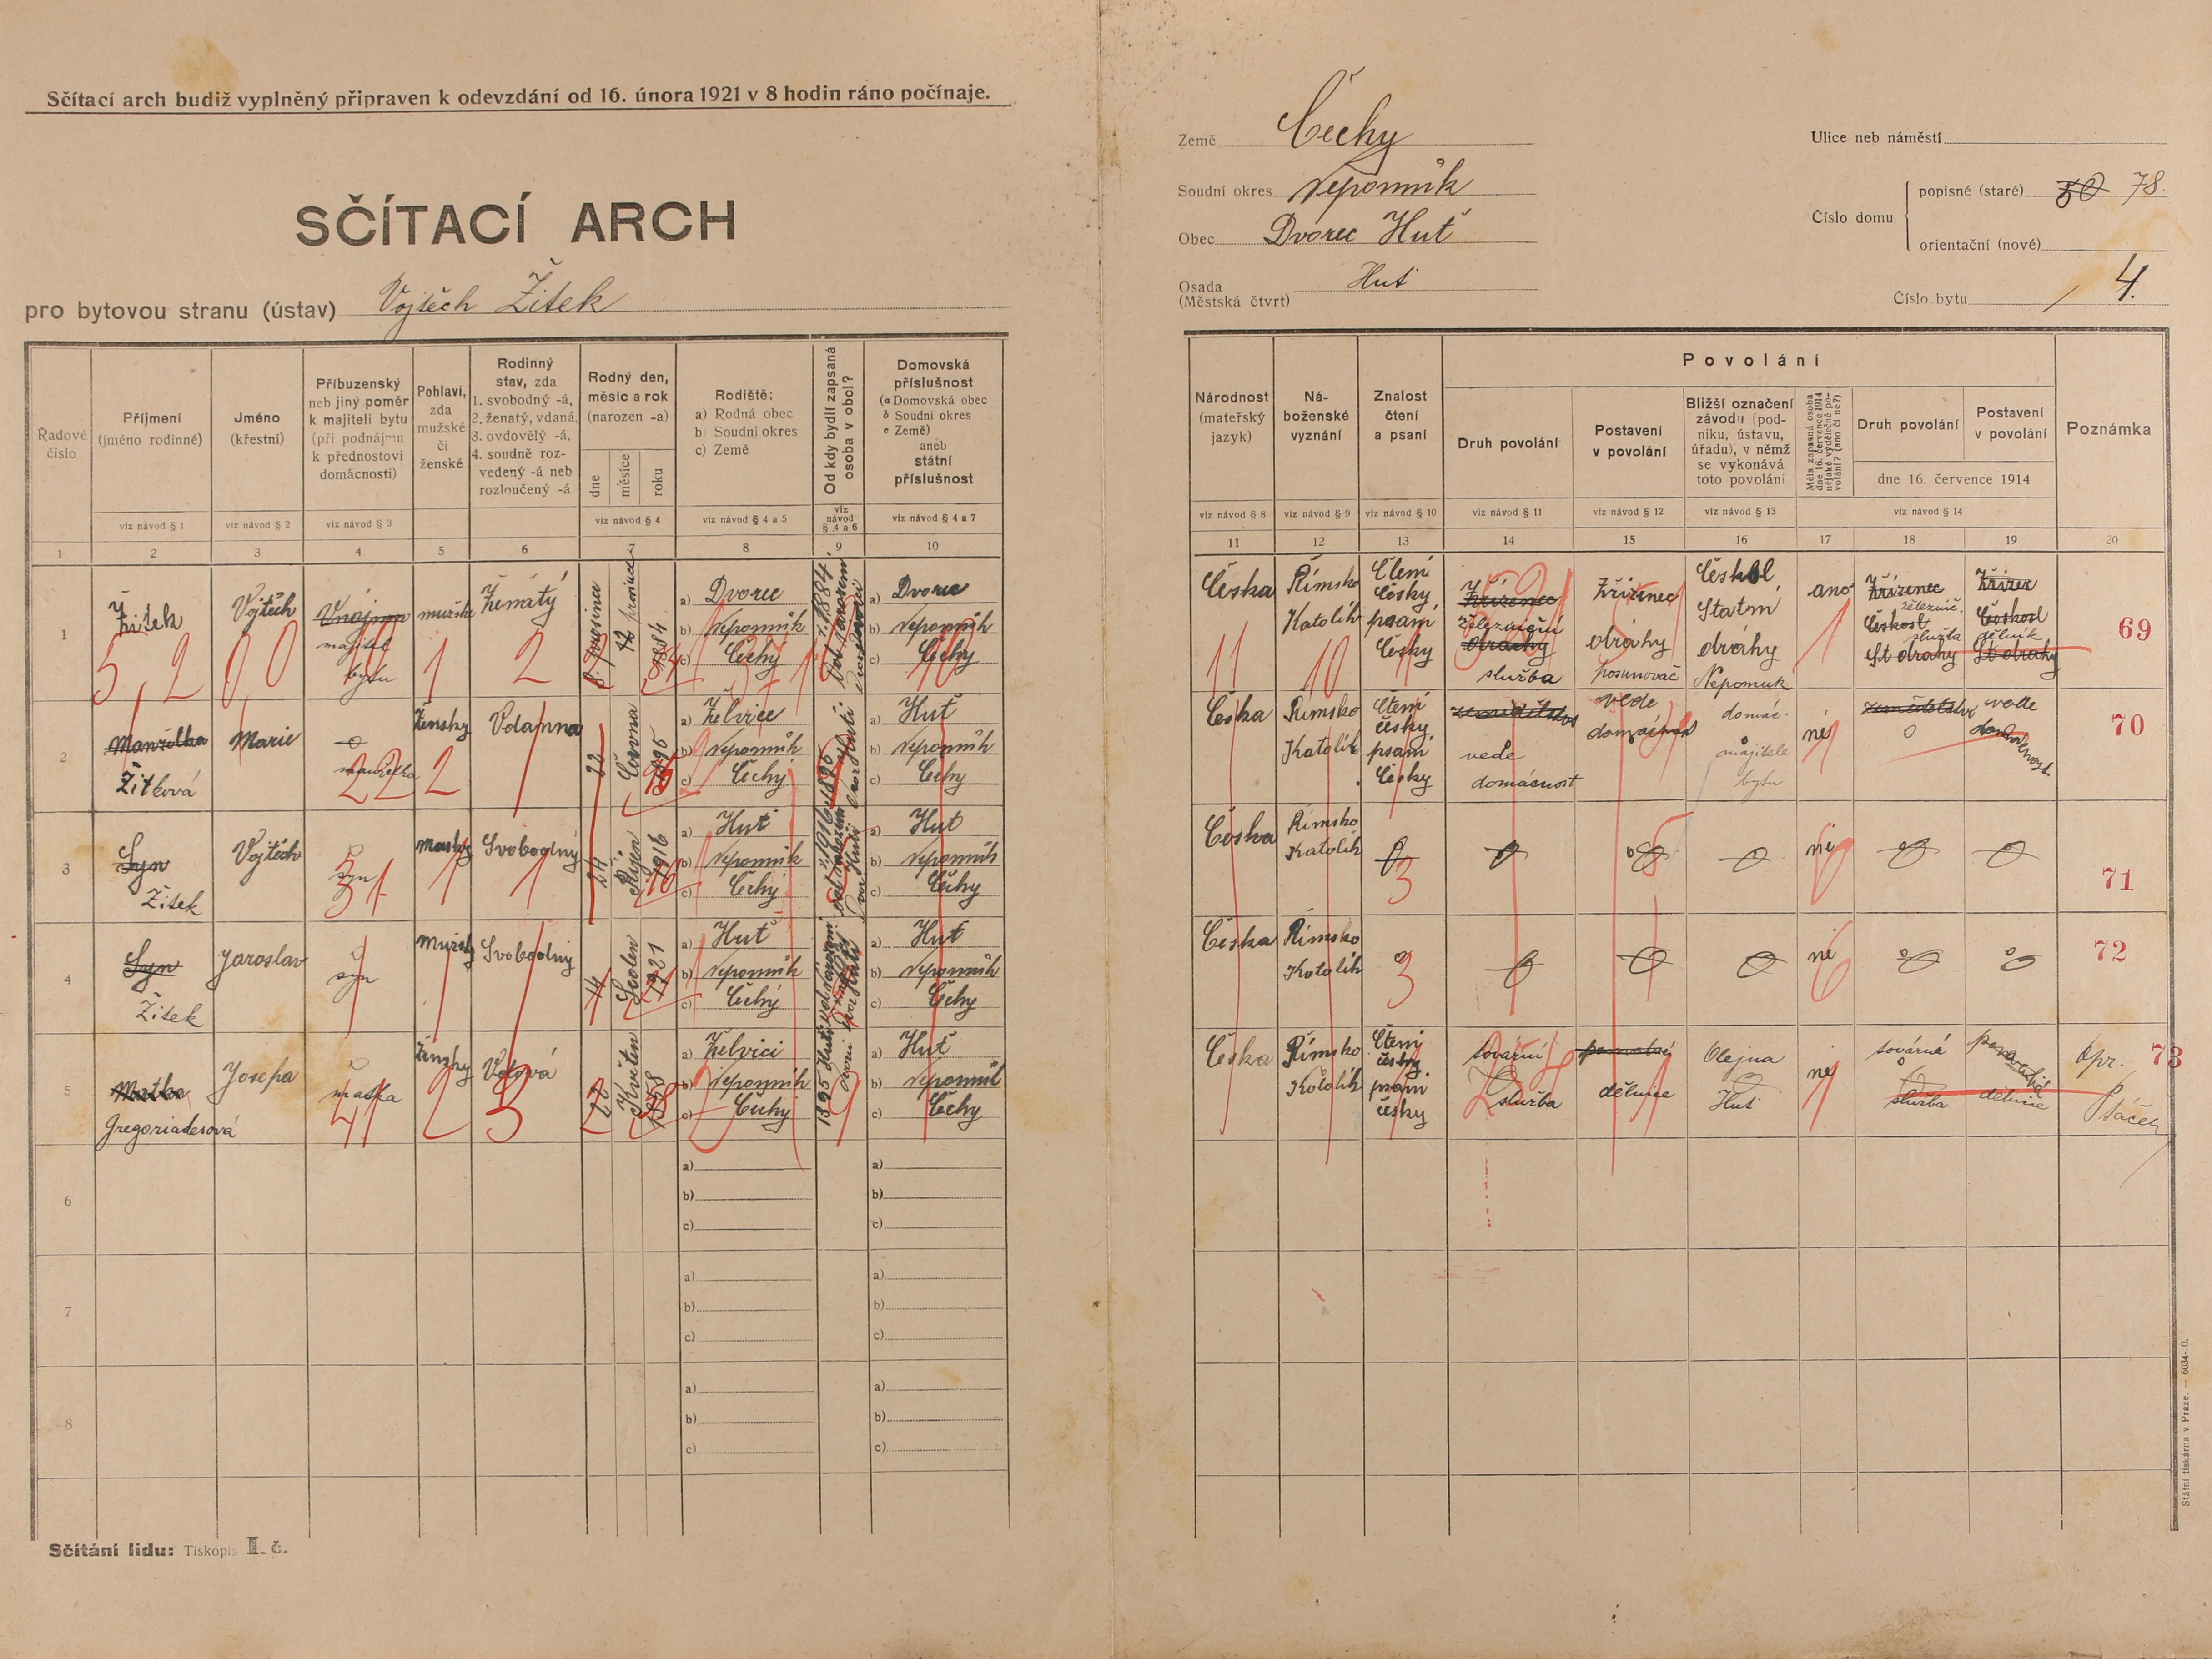 Sčítací arch budiž vyplněný připraven k odevzdání od 16. února 1921 v 8 hodin ráno počínaje.
SČÍTACÍ ARCH
pro bytovou stranu (ústav) Vojtěch Žitek
Země Čechy
Soudní okres Nepomuk
Obec Dvorec Huť
Osada Huť
(Městská čtvrt)
Ulice neb náměstí
Číslo domu
popisné (staré) 50 78.
orientační (nové)
Číslo bytu 4.
Řadové číslo
Příjmení
(jméno rodinné)
viz návod § 1
Jméno
(křestní)
viz návod § 2
Příbuzenský
neb jiný poměr
k majiteli bytu
(při podnájmu
k přednostovi
domácnosti)
viz návod § 3
Pohlaví,
zda
mužské
či
ženské
Rodinný
stav, zda
1. svobodný -á,
2. ženatý, vdaná,
3. ovdovělý -á,
4. soudně roz-
vedený -á neb
rozloučený -á
Rodný den,
měsíc a rok
(narozen -a)
dne
měsíce
roku
viz návod § 4
Rodiště:
a) Rodná obec
b) Soudní okres
c) Země
viz návod § 4 a 5
Od kdy bydlí zapsaná
osoba v obci?
viz
návod
§ 4 a 6
Domovská
příslušnost
(a Domovská obec
b Soudní okres
c Země)
aneb
státní
příslušnost
viz návod § 4 a 7
Národnost
(mateřský
jazyk)
viz návod § 8
Ná-
boženské
vyznání
viz návod § 9
Znalost
čtení
a psaní
viz návod § 10
Povolání
Druh povolání
viz návod § 11
Postavení
v povolání
viz návod § 12
Bližší označení
závodu (pod-
niku, ústavu,
úřadu), v němž
se vykonává
toto povolání
viz návod § 13
Měla zapsaná osoba
dne 16. července 1914
nějaké výdělečné po-
volání? (ano či ne?)
Druh povolání
Postavení
v povolání
dne 16. července 1914
viz návod § 14
Poznámka
1 2 3 4 5 6 7 8 9 10
11 12 13 14 15 16 17 18 19 20
1 Žitek Vojtěch majitel bytu Ženatý 1884
a) Dvorec
b) Nepomuk
c) Čechy
a) Dvorec
b) Nepomuk
c) Čechy
Česka Římsko Katolík Čtení Česky psaní Česky
Zřízenec železniční drahy služba
Zřízenec dráhy posunovač
Státní dráhy Nepomuk
ano
69
2 Manželka Žitková Marie manželka Ženský 22 Června 1895
a) Želvice
b) Nepomuk
c) Čechy
a) Huť
b) Nepomuk
c) Čechy
Česka Římsko Katolík Čtení česky psaní Česky
vede domácnost
vede
domác. majitele bytu
né
vede
70
3 Syn Žitek Vojtěch syn Svobodný 24 Říjen 1916
a) Huť
b) Nepomuk
c) Čechy
a) Huť
b) Nepomuk
c) Čechy
Římsko Katolík
né
71
4 Syn Žitek Jaroslav syn Svobodný 14 1921
a) Huť
b) Nepomuk
c) Čechy
a) Huť
b) Nepomuk
c) Čechy
Česka Římsko Katolík
né
72
5 Matka Gregoriadesová Josefa matka Ženský Vdová Květen 1858
a) Želvici
b) Nepomuk
c) Čechy
a) Huť
b) Nepomuk
c) Čechy
Česka Římsko Katolík Čtení česky psaní česky
tovární služba
dělnice
Olejna Huť
né
tovární služba
dělnice
Opr. Ptáček
73
6
a)
b)
c)
a)
b)
c)
7
a)
b)
c)
a)
b)
c)
8
a)
b)
c)
a)
b)
c)
Sčítání lidu: Tiskopis II. č.
Státní tiskárna v Praze. — 6034-20.